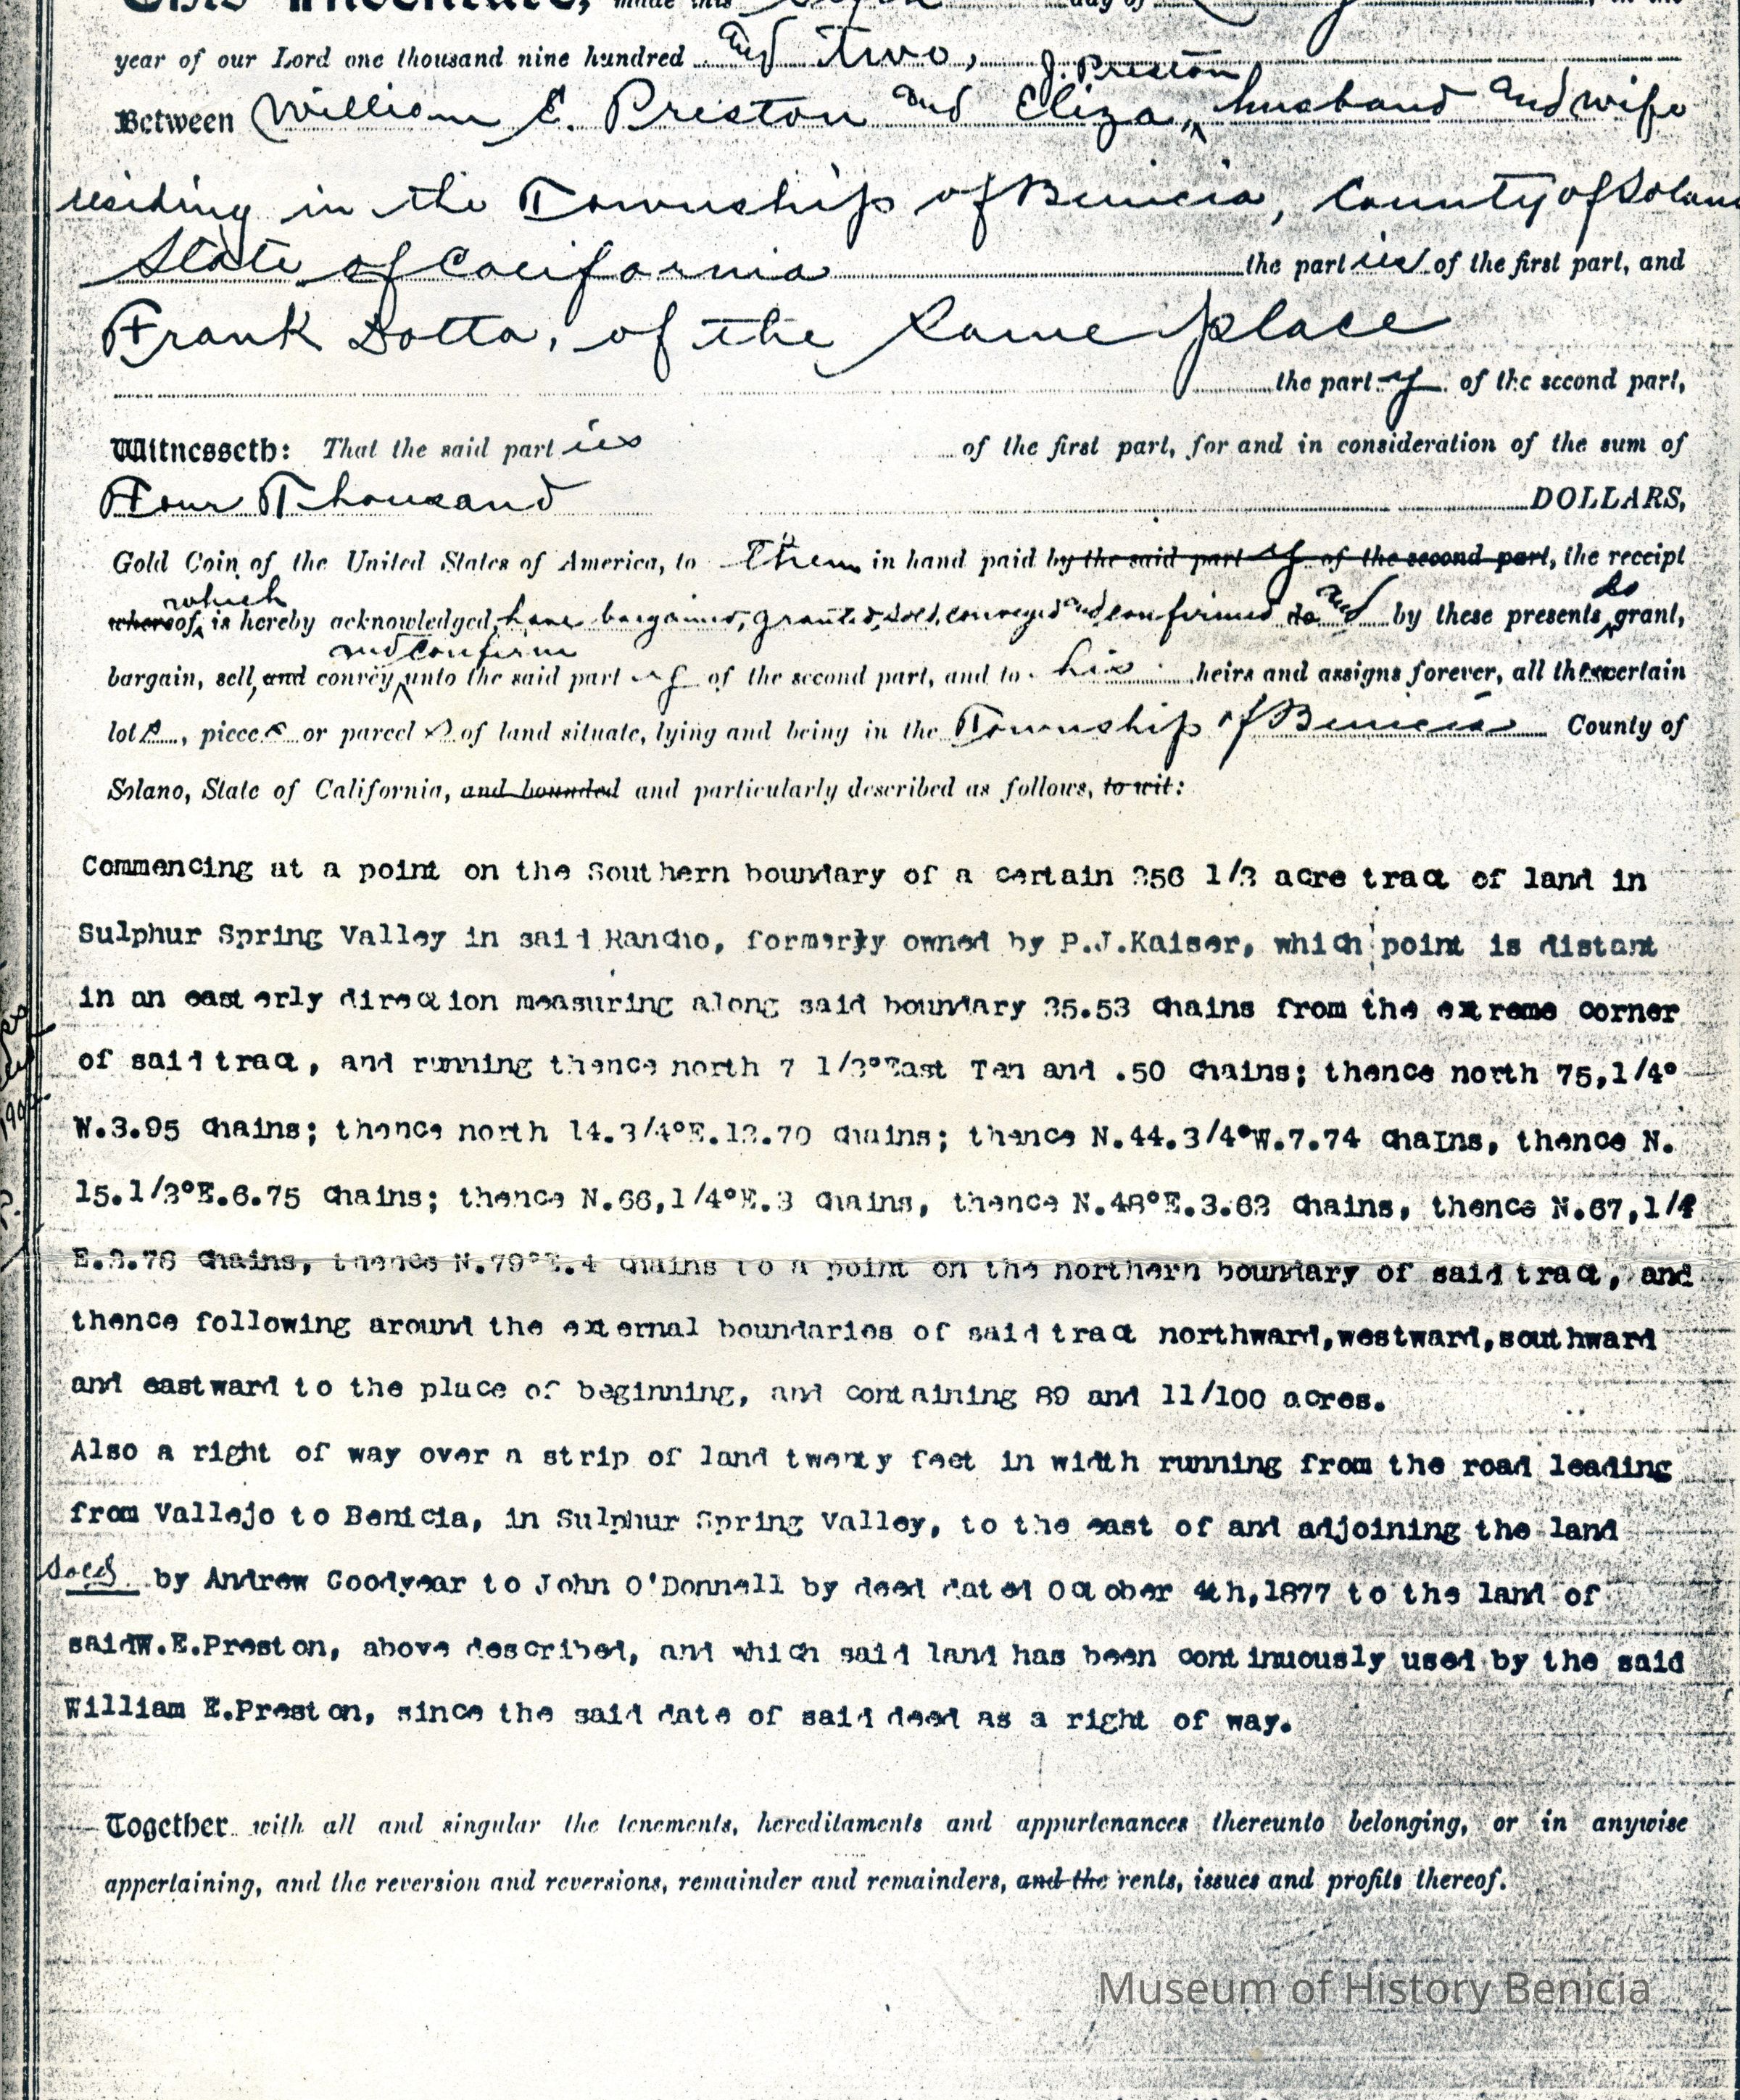 This Indenture, made this day of
year of our Lord one thousand nine hundred and two,
J. Preston
Between William E. Preston and Eliza ^ husband and wife
residing in the Township of Benicia, County of Solano
State of California the parties of the first part, and
Frank Dotta, of the same place
the party of the second part,
Witnesseth: That the said parties of the first part, for and in consideration of the sum of
Four Thousand DOLLARS,
Gold Coin of the United States of America, to them in hand paid by the said party of the second part, the receipt
which and do
whereof, is hereby acknowledged, have bargained, granted, sold, conveyed and confirmed do by these presents, grant,
and confirm
bargain, sell, and convey ^ unto the said party of the second part, and to his heirs and assigns forever, all those certain
lots, pieces or parcels of land situate, lying and being in the Township of Benicia County of
Solano, State of California, and bounded and particularly described as follows, to wit:
Commencing at a point on the Southern boundary of a certain 256 1/2 acre tract of land in
Sulphur Spring Valley in said Rancho, formerly owned by P.J.Kaiser, which point is distant
in an easterly direction measuring along said boundary 25.53 chains from the extreme corner
of said tract, and running thence north 7 1/2°East Ten and .50 Chains; thence north 75,1/4°
W.3.95 Chains; thence north 14.3/4°E.12.70 Chains; thence N.44.3/4°W.7.74 ChaIns, thence N.
15.1/2°E.6.75 Chains; thence N.66,1/4°E.3 Chains, thence N.48°E.3.62 Chains, thence N.67,1/4
E.2.78 Chains, thence N.79°E.4 Chains to a point on the northern boundary of said tract, and
thence following around the external boundaries of said tract northward,westward,southward
and eastward to the place of beginning, and containing 89 and 11/100 acres.
Also a right of way over a strip of land twenty feet in width running from the road leading
from Vallejo to Benicia, in Sulphur Spring Valley, to the east of and adjoining the land
sold by Andrew Goodyear to John O'Donnell by deed dated October 4th,1877 to the land of
saidW.E.Preston, above described, and which said land has been continuously used by the said
William E.Preston, since the said date of said deed as a right of way.
Together with all and singular the tenements, hereditaments and appurtenances thereunto belonging, or in anywise
appertaining, and the reversion and reversions, remainder and remainders, and the rents, issues and profits thereof.
Museum of History Benicia